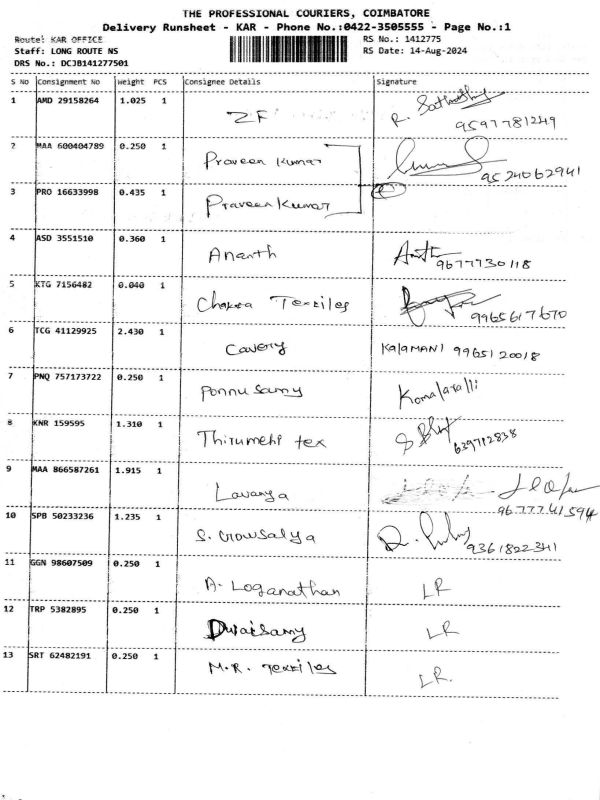 THE PROFESSIONAL COURIERS, COIMBATORE
Delivery Runsheet - KAR - Phone No.:0422-3505555 - Page No.:1
Route: KAR OFFICE RS No.: 1412775
Staff: LONG ROUTE NS RS Date: 14-Aug-2024
DRS No.: DCJB141277501
S No Consignment No Weight PCS Consignee Details Signature
1 AMD 29158264 1.025 1 ZF R. 9597781249
2 MAA 600404789 0.250 1 Praveen Kumar 9524062941
3 PRO 16633998 0.435 1 Praveen Kumar
4 ASD 3551510 0.360 1 Ananth 9677730118
5 KTG 7156482 0.040 1 Textiles 9965617670
6 TCG 41129925 2.430 1 Cavery KALAMANI 9965120018
7 PNQ 757173722 0.250 1 Ponnusamy
8 KNR 159595 1.310 1 tex 639712838
9 MAA 866587261 1.915 1 Lavanya 9677741594
10 SPB 50233236 1.235 1 S. Gowsalya 9361822341
11 GGN 98607509 0.250 1 A. Loganathan LR
12 TRP 5382895 0.250 1 Duraisamy LR
13 SRT 62482191 0.250 1 M.R. Textiles LR.